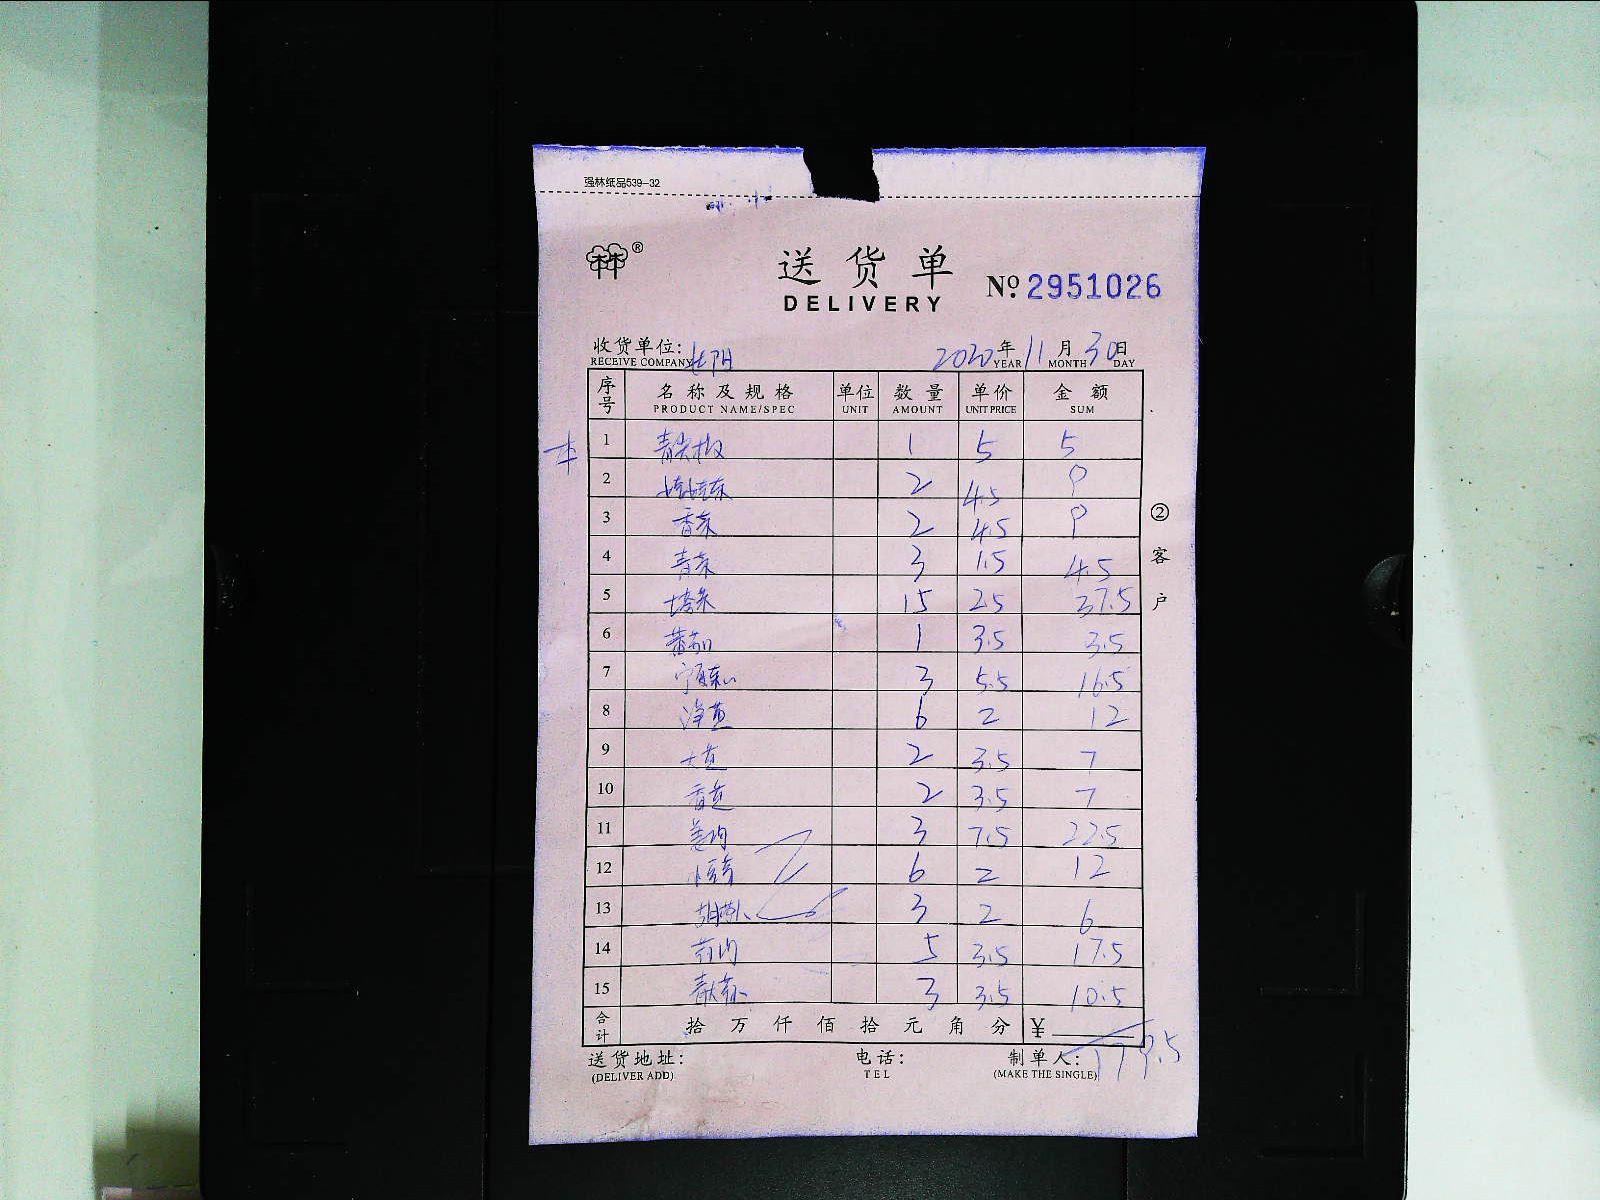 强林纸品539-32
林®
送货单
DELIVERY
№ 2951026
收货单位: 长阳 2020年11月30日
RECEIVE COMPANY YEAR MONTH DAY
序号 名称及规格 单位 数量 单价 金额
PRODUCT NAME/SPEC UNIT AMOUNT UNIT PRICE SUM
1 青尖椒 1 5 5
2 2 4.5 9
3 香菜 2 4.5 9
4 青菜 3 1.5 4.5
5 塔菜 15 2.5 37.5
6 1 3.5 3.5
7 3 5.5 16.5
8 6 2 12
9 大葱 2 3.5 7
10 香葱 2 3.5 7
11 3 7.5 22.5
12 6 2 12
13 3 2 6
14 5 3.5 17.5
15 3 3.5 10.5
合计 拾万仟佰拾元角分 ¥ 179.5
②客户
送货地址: 电话: 制单人:
(DELIVER ADD) TEL (MAKE THE SINGLE)